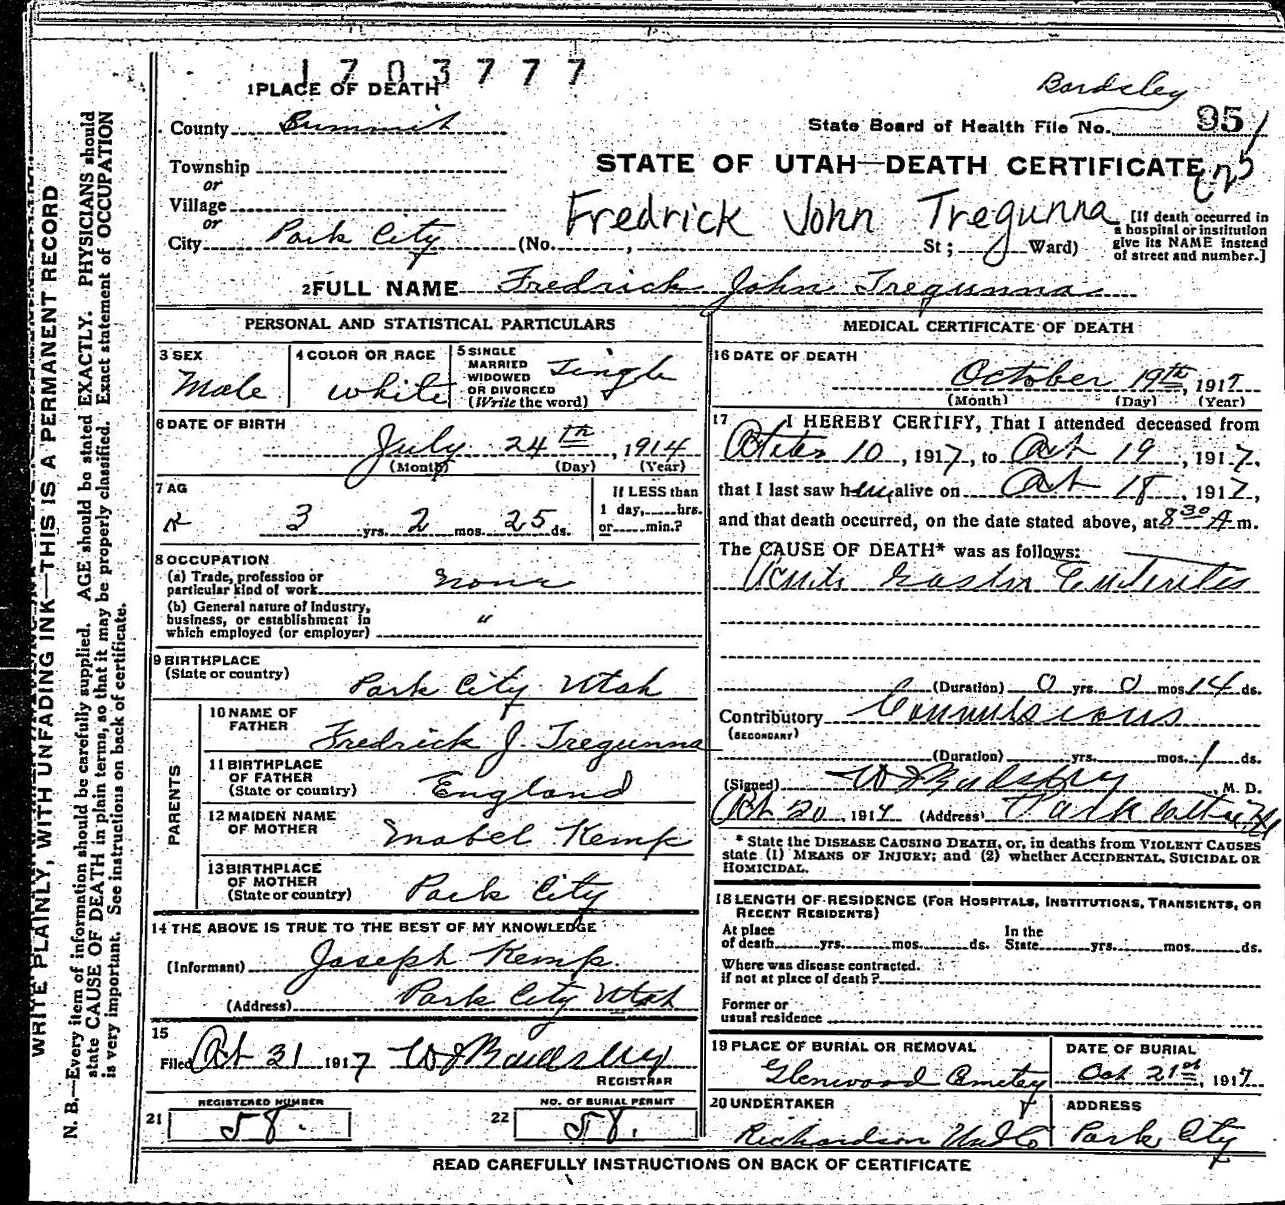 1703777
1 PLACE OF DEATH
Bardsley
County Summit
State Board of Health File No. 95
Township
STATE OF UTAH—DEATH CERTIFICATE
or
Village
or
Fredrick John Tregunna
City Park City (No. , St; Ward)
[If death occurred in a hospital or institution give its NAME instead of street and number.]
2 FULL NAME Fredrick John Tregunna
PERSONAL AND STATISTICAL PARTICULARS
3 SEX
Male
4 COLOR OR RACE
White
5 SINGLE
MARRIED
WIDOWED
OR DIVORCED
(Write the word)
Single
6 DATE OF BIRTH
July 24th, 1914
(Month) (Day) (Year)
7 AG
3 yrs. 2 mos. 25 ds.
If LESS than
1 day, hrs.
or min.?
8 OCCUPATION
(a) Trade, profession or
particular kind of work None
(b) General nature of Industry,
business, or establishment in
which employed (or employer) "
9 BIRTHPLACE
(State or country)
Park City Utah
PARENTS
10 NAME OF
FATHER
Fredrick J. Tregunna
11 BIRTHPLACE
OF FATHER
(State or country)
England
12 MAIDEN NAME
OF MOTHER
Mabel Kemp
13 BIRTHPLACE
OF MOTHER
(State or country)
Park City
14 THE ABOVE IS TRUE TO THE BEST OF MY KNOWLEDGE
(Informant) Joseph Kemp.
(Address) Park City Utah
15
Filed Oct 31 1917 W J Bardsley
REGISTRAR
REGISTERED NUMBER
21 58.
NO. OF BURIAL PERMIT
22 58.
MEDICAL CERTIFICATE OF DEATH
16 DATE OF DEATH
October 19th, 1917
(Month) (Day) (Year)
17 I HEREBY CERTIFY, That I attended deceased from
October 10, 1917, to Oct 19, 1917,
that I last saw him alive on Oct 18, 1917,
and that death occurred, on the date stated above, at 8 30 A m.
The CAUSE OF DEATH* was as follows:
Acute Gastro Enteritis
(Duration) 0 yrs. 0 mos. 14 ds.
Contributory Convulsions
(SECONDARY)
(Duration) yrs. mos. 1 ds.
(Signed) W J Bardsley M. D.
Oct 20, 1917 (Address) Park City
* State the DISEASE CAUSING DEATH, or, in deaths from VIOLENT CAUSES
state (1) MEANS OF INJURY; and (2) whether ACCIDENTAL, SUICIDAL OR
HOMICIDAL.
18 LENGTH OF RESIDENCE (FOR HOSPITALS, INSTITUTIONS, TRANSIENTS, OR
RECENT RESIDENTS)
At place
of death yrs. mos. ds.
In the
State yrs. mos. ds.
Where was disease contracted.
if not at place of death?
Former or
usual residence
19 PLACE OF BURIAL OR REMOVAL
Glenwood Cemetery
DATE OF BURIAL
Oct 21st, 1917
20 UNDERTAKER
Richardson Und Co
ADDRESS
Park City
READ CAREFULLY INSTRUCTIONS ON BACK OF CERTIFICATE
WRITE PLAINLY, WITH UNFADING INK—THIS IS A PERMANENT RECORD
N. B.—Every item of information should be carefully supplied. AGE should be stated EXACTLY. PHYSICIANS should
state CAUSE OF DEATH in plain terms, so that it may be properly classified. Exact statement of OCCUPATION
is very important. See instructions on back of certificate.